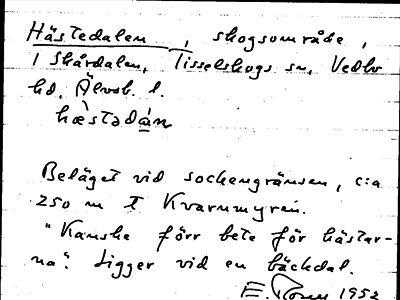 Hästedalen, skogsområde,
i Skårdalen, Tisselskogs sn, Vedbo
hd, Älvsb. l.
hæ̀stadán
Beläget vid sockengränsen, c:a
250 m
Kvarnmyren.
"Kanske förr bete för hästar-
na". Ligger vid en bäckdal.
E. 1952